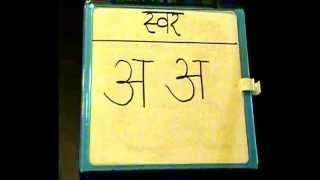 स्वर
अ अ